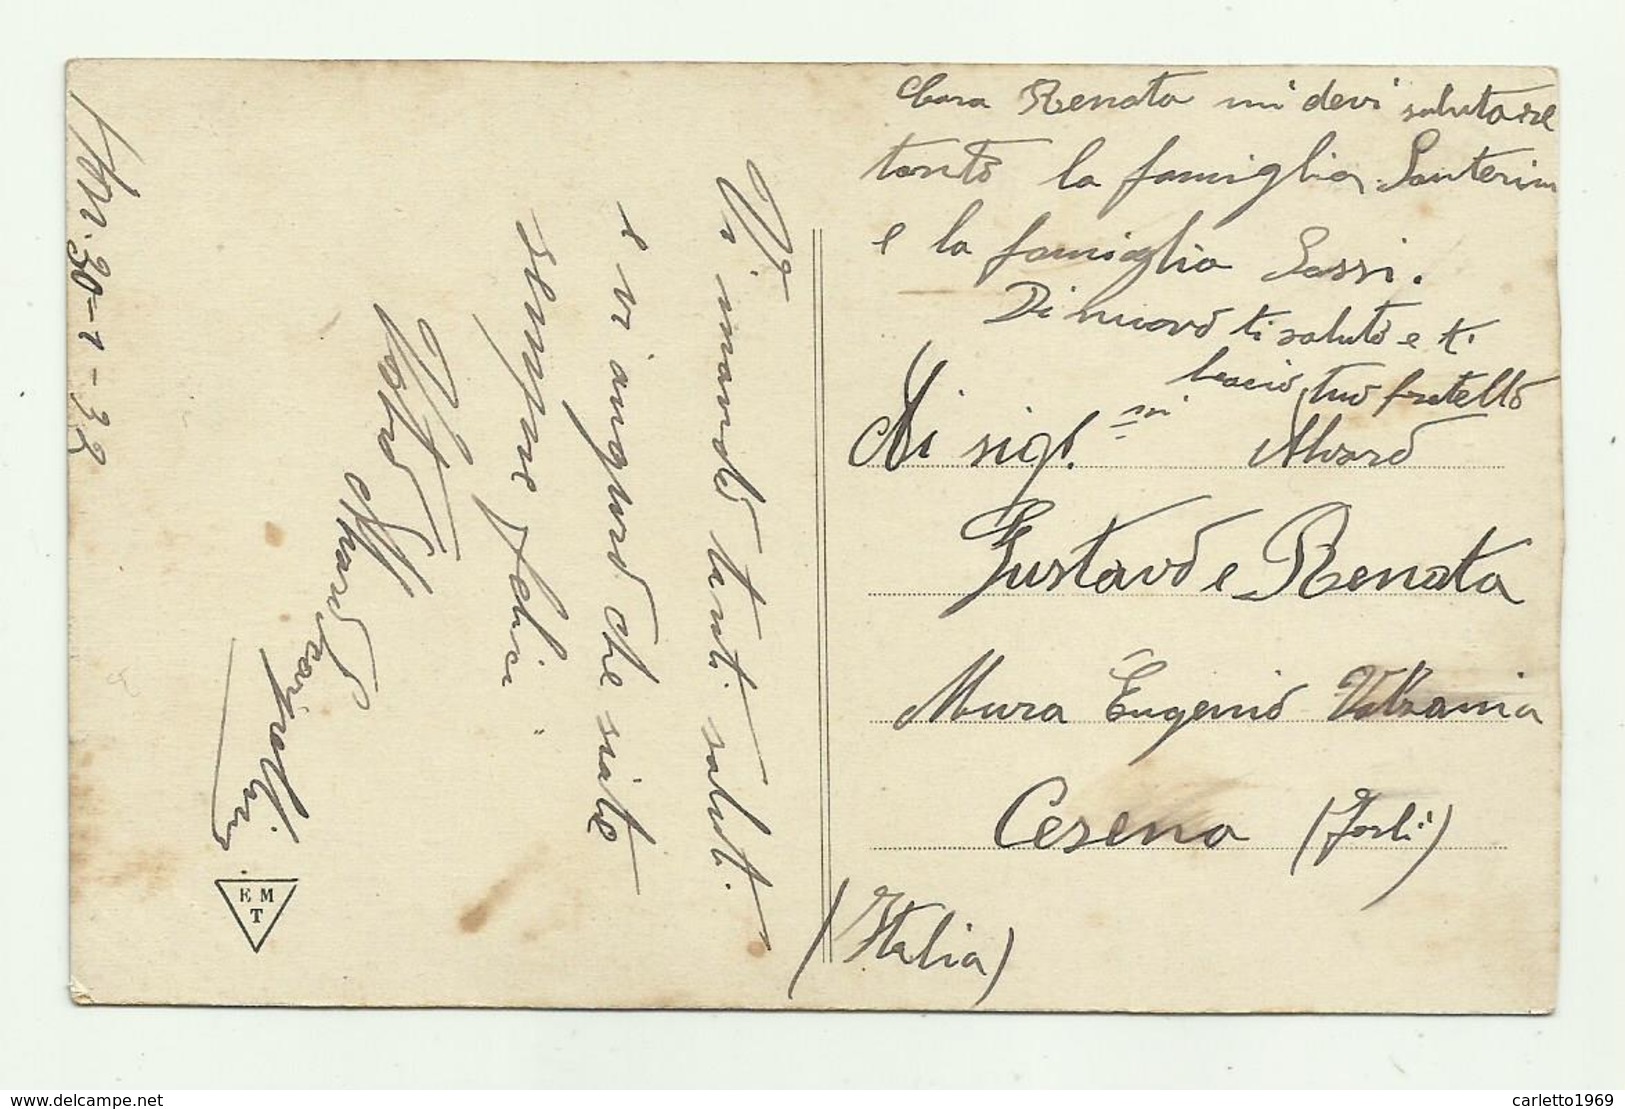 30-1-32
Vi mando tanti saluti
e vi auguro che siate
sempre felici
Vostro Alvaro
Scarpellini
E M
T
Cara Renata mi devi salutare
tanto la famiglia Santerini
e la famiglia Sassi.
Di nuovo ti saluto e ti
bacio, tuo fratello
Alvaro
Ai sigl.mi
Gustavo e Renata
Mura Eugenio Valzania
Cesena (Forlì)
(Italia)
www.delcampe.net
carletto1969